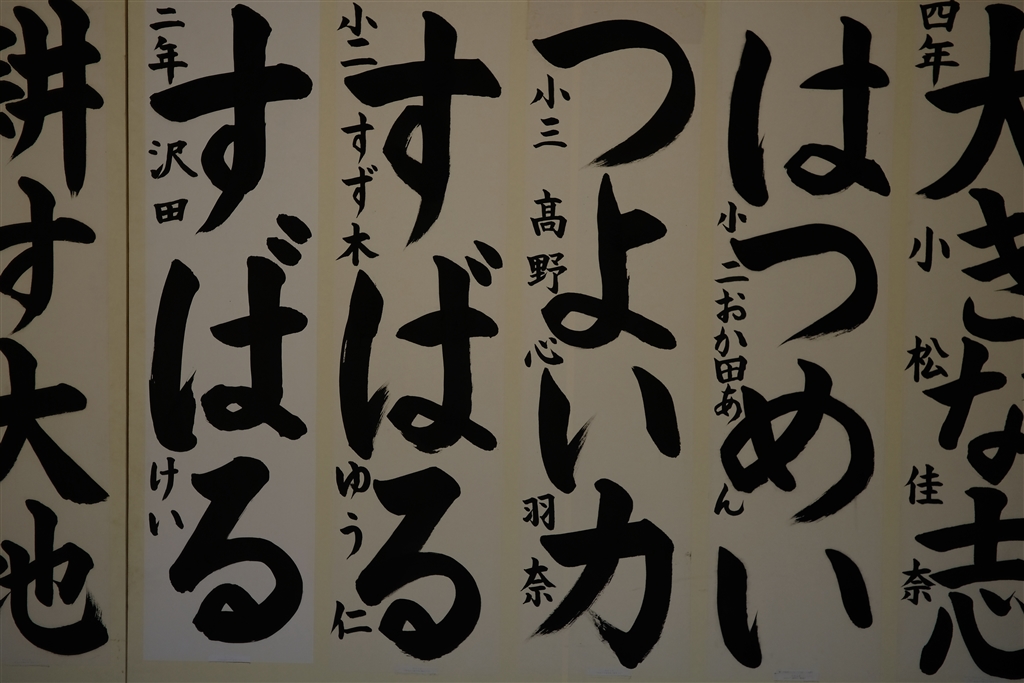 大きな志
四年 小松佳奈
はつめい
小二 おか田あん
つよい力
小三 髙野心羽奈
すばる
小二 すず木ゆう仁
すばる
二年 沢田けい
耕す大池